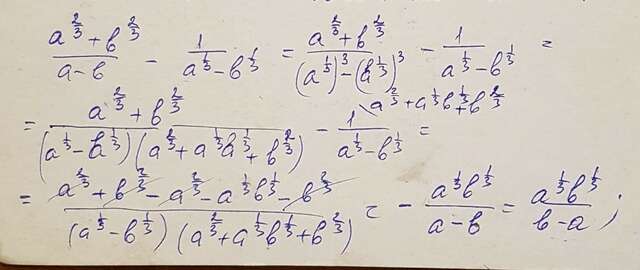 (a^{2/3} + b^{2/3})/(a - b) - 1/(a^{1/3} - b^{1/3}) = (a^{2/3} + b^{2/3})/((a^{1/3})^3 - (b^{1/3})^3) - 1/(a^{1/3} - b^{1/3}) =
= (a^{2/3} + b^{2/3})/((a^{1/3} - b^{1/3})(a^{2/3} + a^{1/3}b^{1/3} + b^{2/3})) - 1\a^{2/3} + a^{1/3}b^{1/3} + b^{2/3}/(a^{1/3} - b^{1/3}) =
= (a^{2/3} + b^{2/3} - a^{2/3} - a^{1/3}b^{1/3} - b^{2/3})/((a^{1/3} - b^{1/3})(a^{2/3} + a^{1/3}b^{1/3} + b^{2/3})) = - (a^{1/3}b^{1/3})/(a - b) = (a^{1/3}b^{1/3})/(b - a) ;